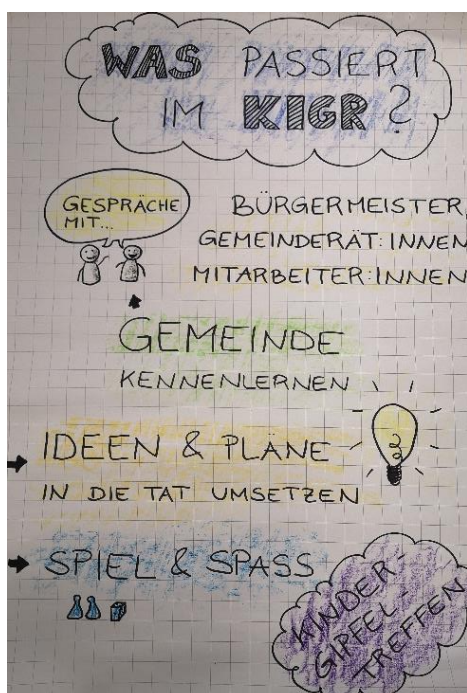 WAS PASSIERT
IM KIGR?
GESPRÄCHE
MIT...
BÜRGERMEISTER,
GEMEINDERÄT:INNEN
MITARBEITER:INNEN
GEMEINDE
KENNENLERNEN
IDEEN & PLÄNE
IN DIE TAT UMSETZEN
SPIEL & SPASS
KINDER-
GIPFEL-
TREFFEN